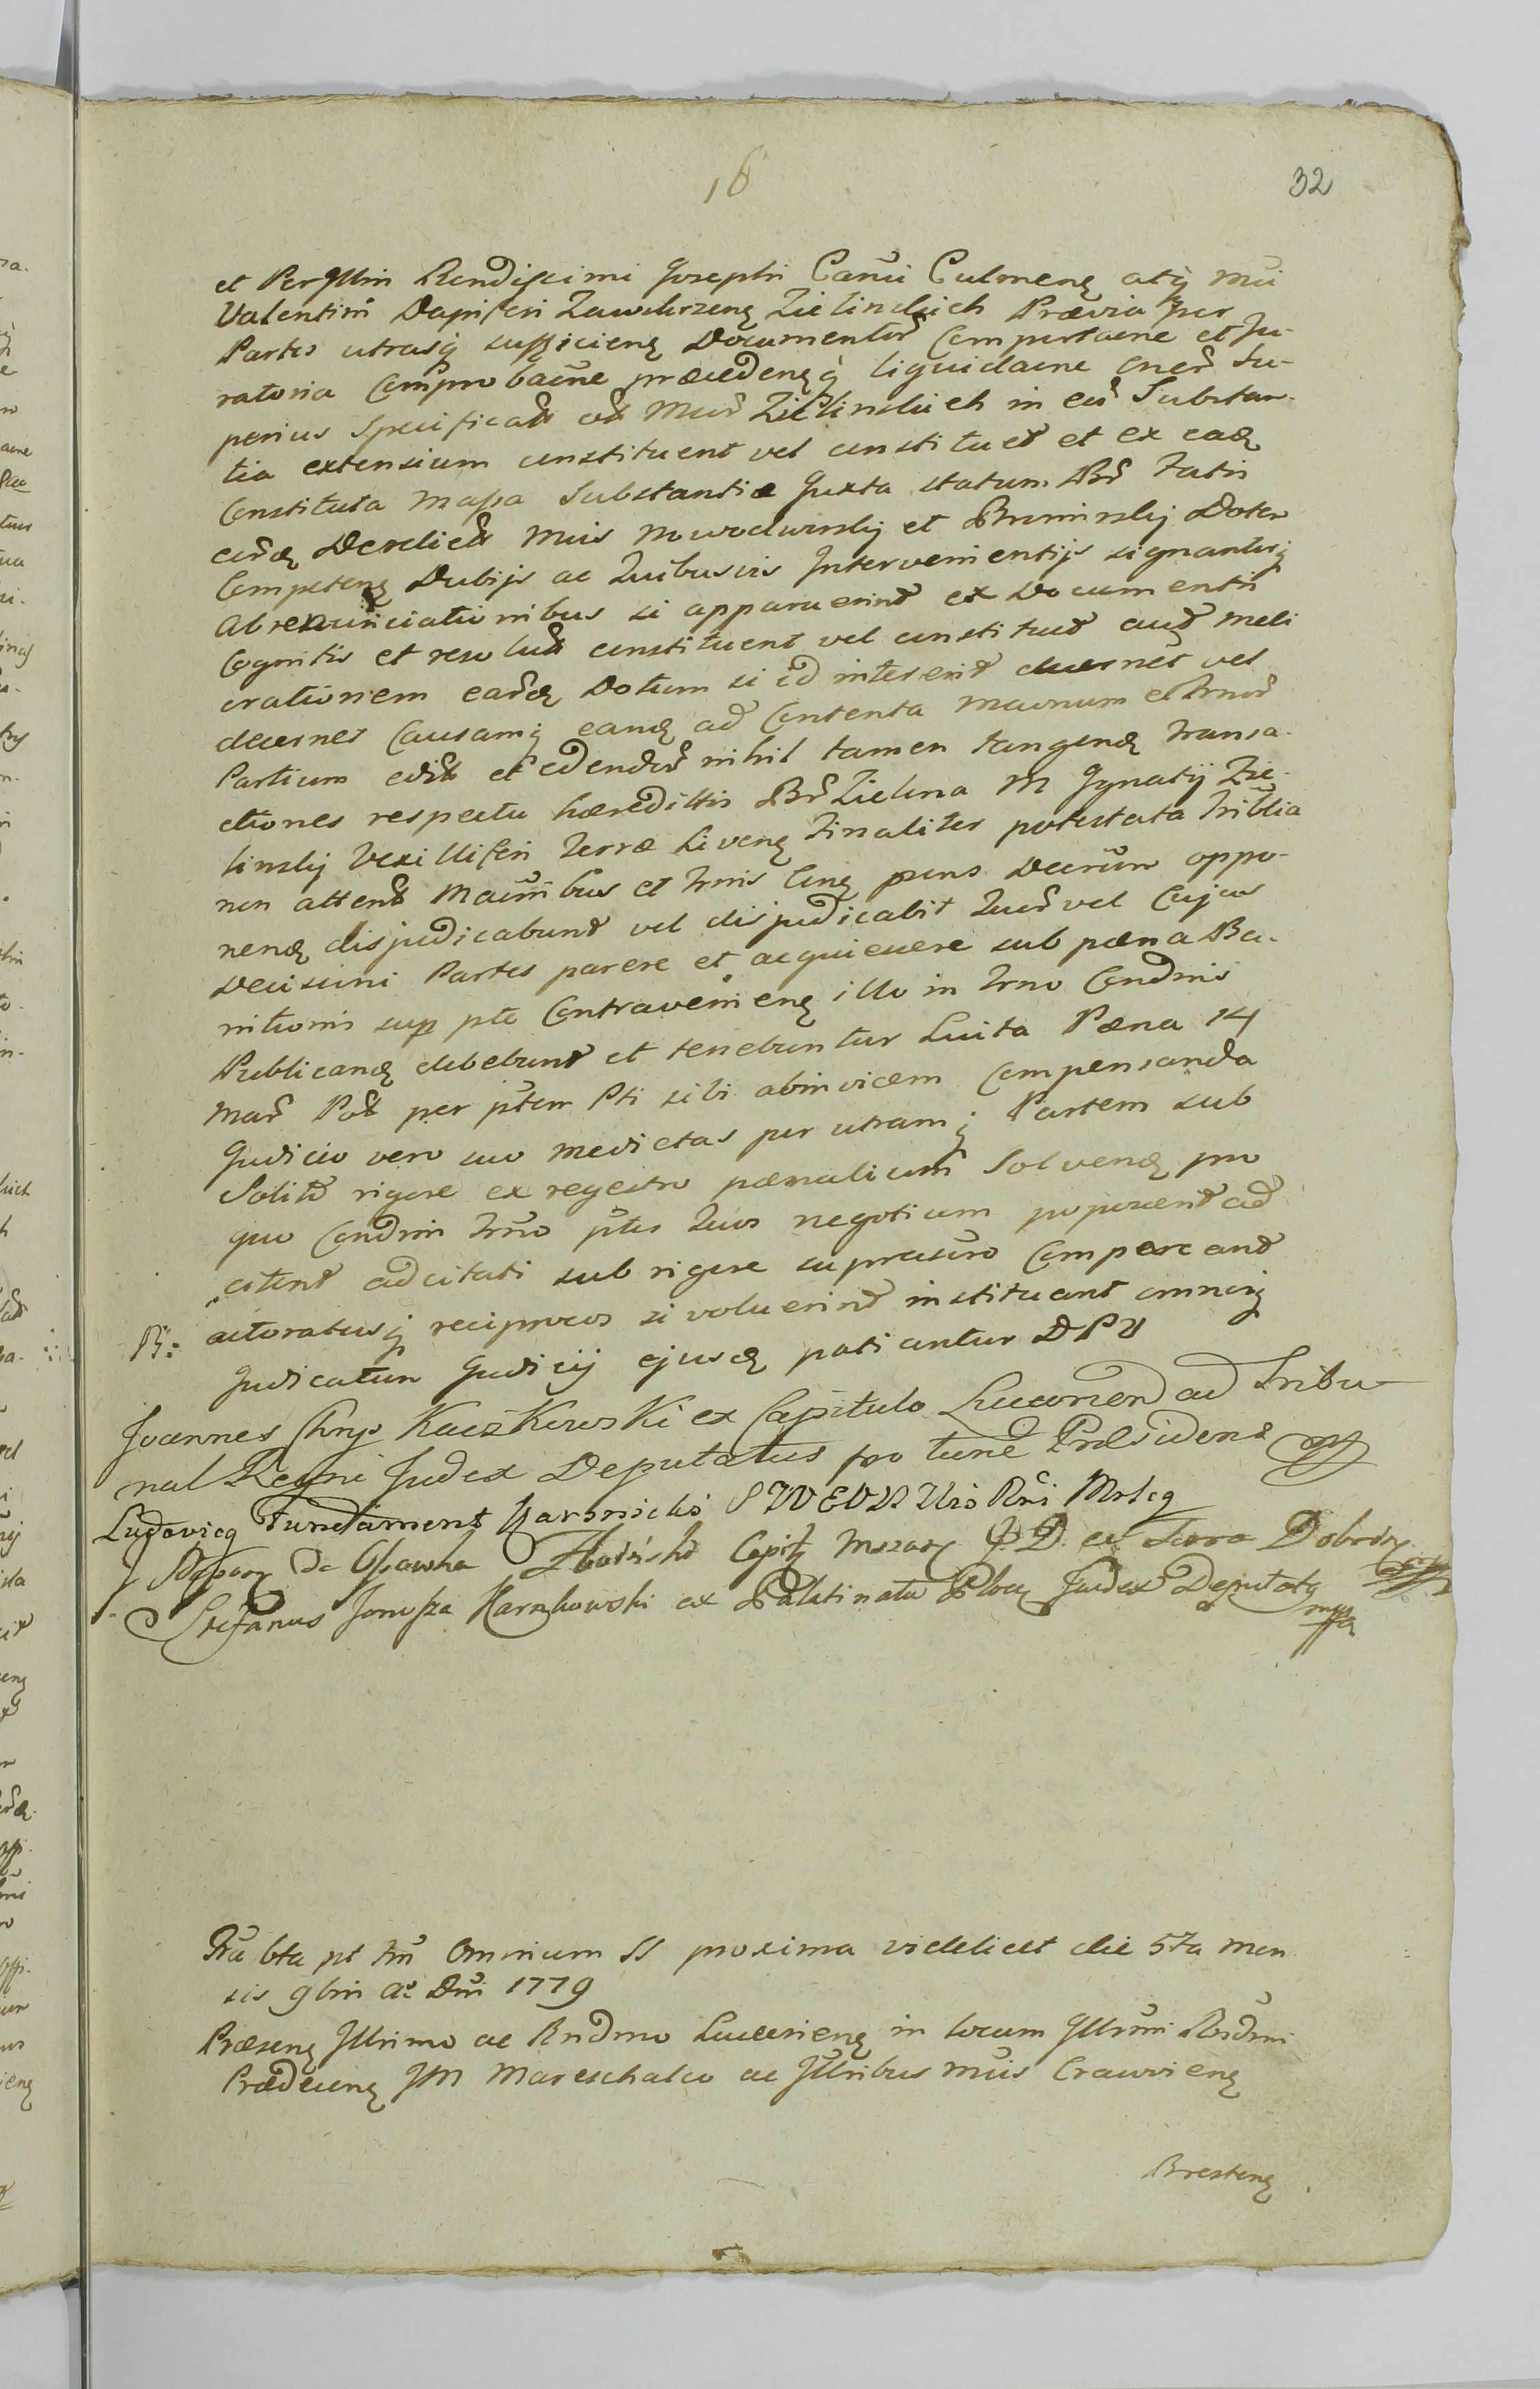 16
32
et Per Jllrin Rendissimi Josephi Canui Culmenę atq̨ Mui
Valentini Dapiferi Zawskrzenę Zielinskich Prævia per
Partes utrasq̨ sufficienę Documentor̃ Comportaone et Ju-
ratoria Comprobaõne præcedenęq̨ liquidaone oner̃ Su-
perius Specificat̃ Muor̃ Zielinskich in eor̃ Substan-
tia extensium constituent vel constituet et ex eadę
Constituta Massa Substantiæ Juxta statum Br̃ Fatis
ear̃dę Derelict̃ Muis Nowodworskij et Bromirskij Dotes
Competenę Dubijs ac Quibusvis Intervenientijs signanterq̨
Abrenunciationibus si apparuerint ex Documentis
Cognitis et resolut̃ constituent vel constituet auct̃ meli
orationem ear̃dę Dotium si id intererit decernet vel
decernes Causamq̨ eandę ad Contenta Maõnum et Jrnor̃
Partium edit̃ et edendor̃ nihil tamen tangendę Transa-
ctiones respectu hæreditis Br̃ Zielona M Ignatij Zie-
linskij Vexilliferi Terræ Livenę Finaliter potestata Triblia
non attent̃ Maõnibus et Jrnis Cinę pñns Decrũm oppo-
nendę disjudicabunt vel disjudicabit Quor̃ vel Cujus
Decisioni Partes parere et acquiescere sub pæna Ba-
nitionis sup pte Contravenienę illo in Jrno Condnis
Publicandę debebunt et tenebuntur Luita Pæna 14
Mar̃ Pol̃ per ptem Pti sibi abinvicem Compensanda
Judicio vero suo medietas per utramq̨ Partem sub
Solito rigore ex regestro pænalium Solvendę pro
quo Condnis Jrno ptes Quos negotium poposcerit ad
citent adcitati sub rigore suprascro Compareant
R: actoratusq̨ reciprocos si voluerint instituant omneq̨
Judicatum Judicij ejusdę patiantur DPU
Joannes Chryz Kaczkowski ex Capitulo Luceorien ad Tribu-
nal Regni Judex Deputatus pro tunc Præsidens mp
Ludovicq Fundament Karśnicki SWEWN Uis Rni Mrlcq
Gaspary De Ossowka Zboiński Capit̃ Mszan J. D. ex Terra Dobrzy.
Stefanus Junosza Karnkowski ex Palatinatu Plocę Judex Deputatq mpp
Fria 6ta pt fm̃ Omnium SS proxima videlicet die 5ta men
sis 9bris A̅o Dni 1779
Præsenę Jllrimo ac Rndmo Luceorienę in locum Jllrmi Rndmi
Prædecenę JM Mareschalco ac Jllribus Muis Cracovienę
Brestenę